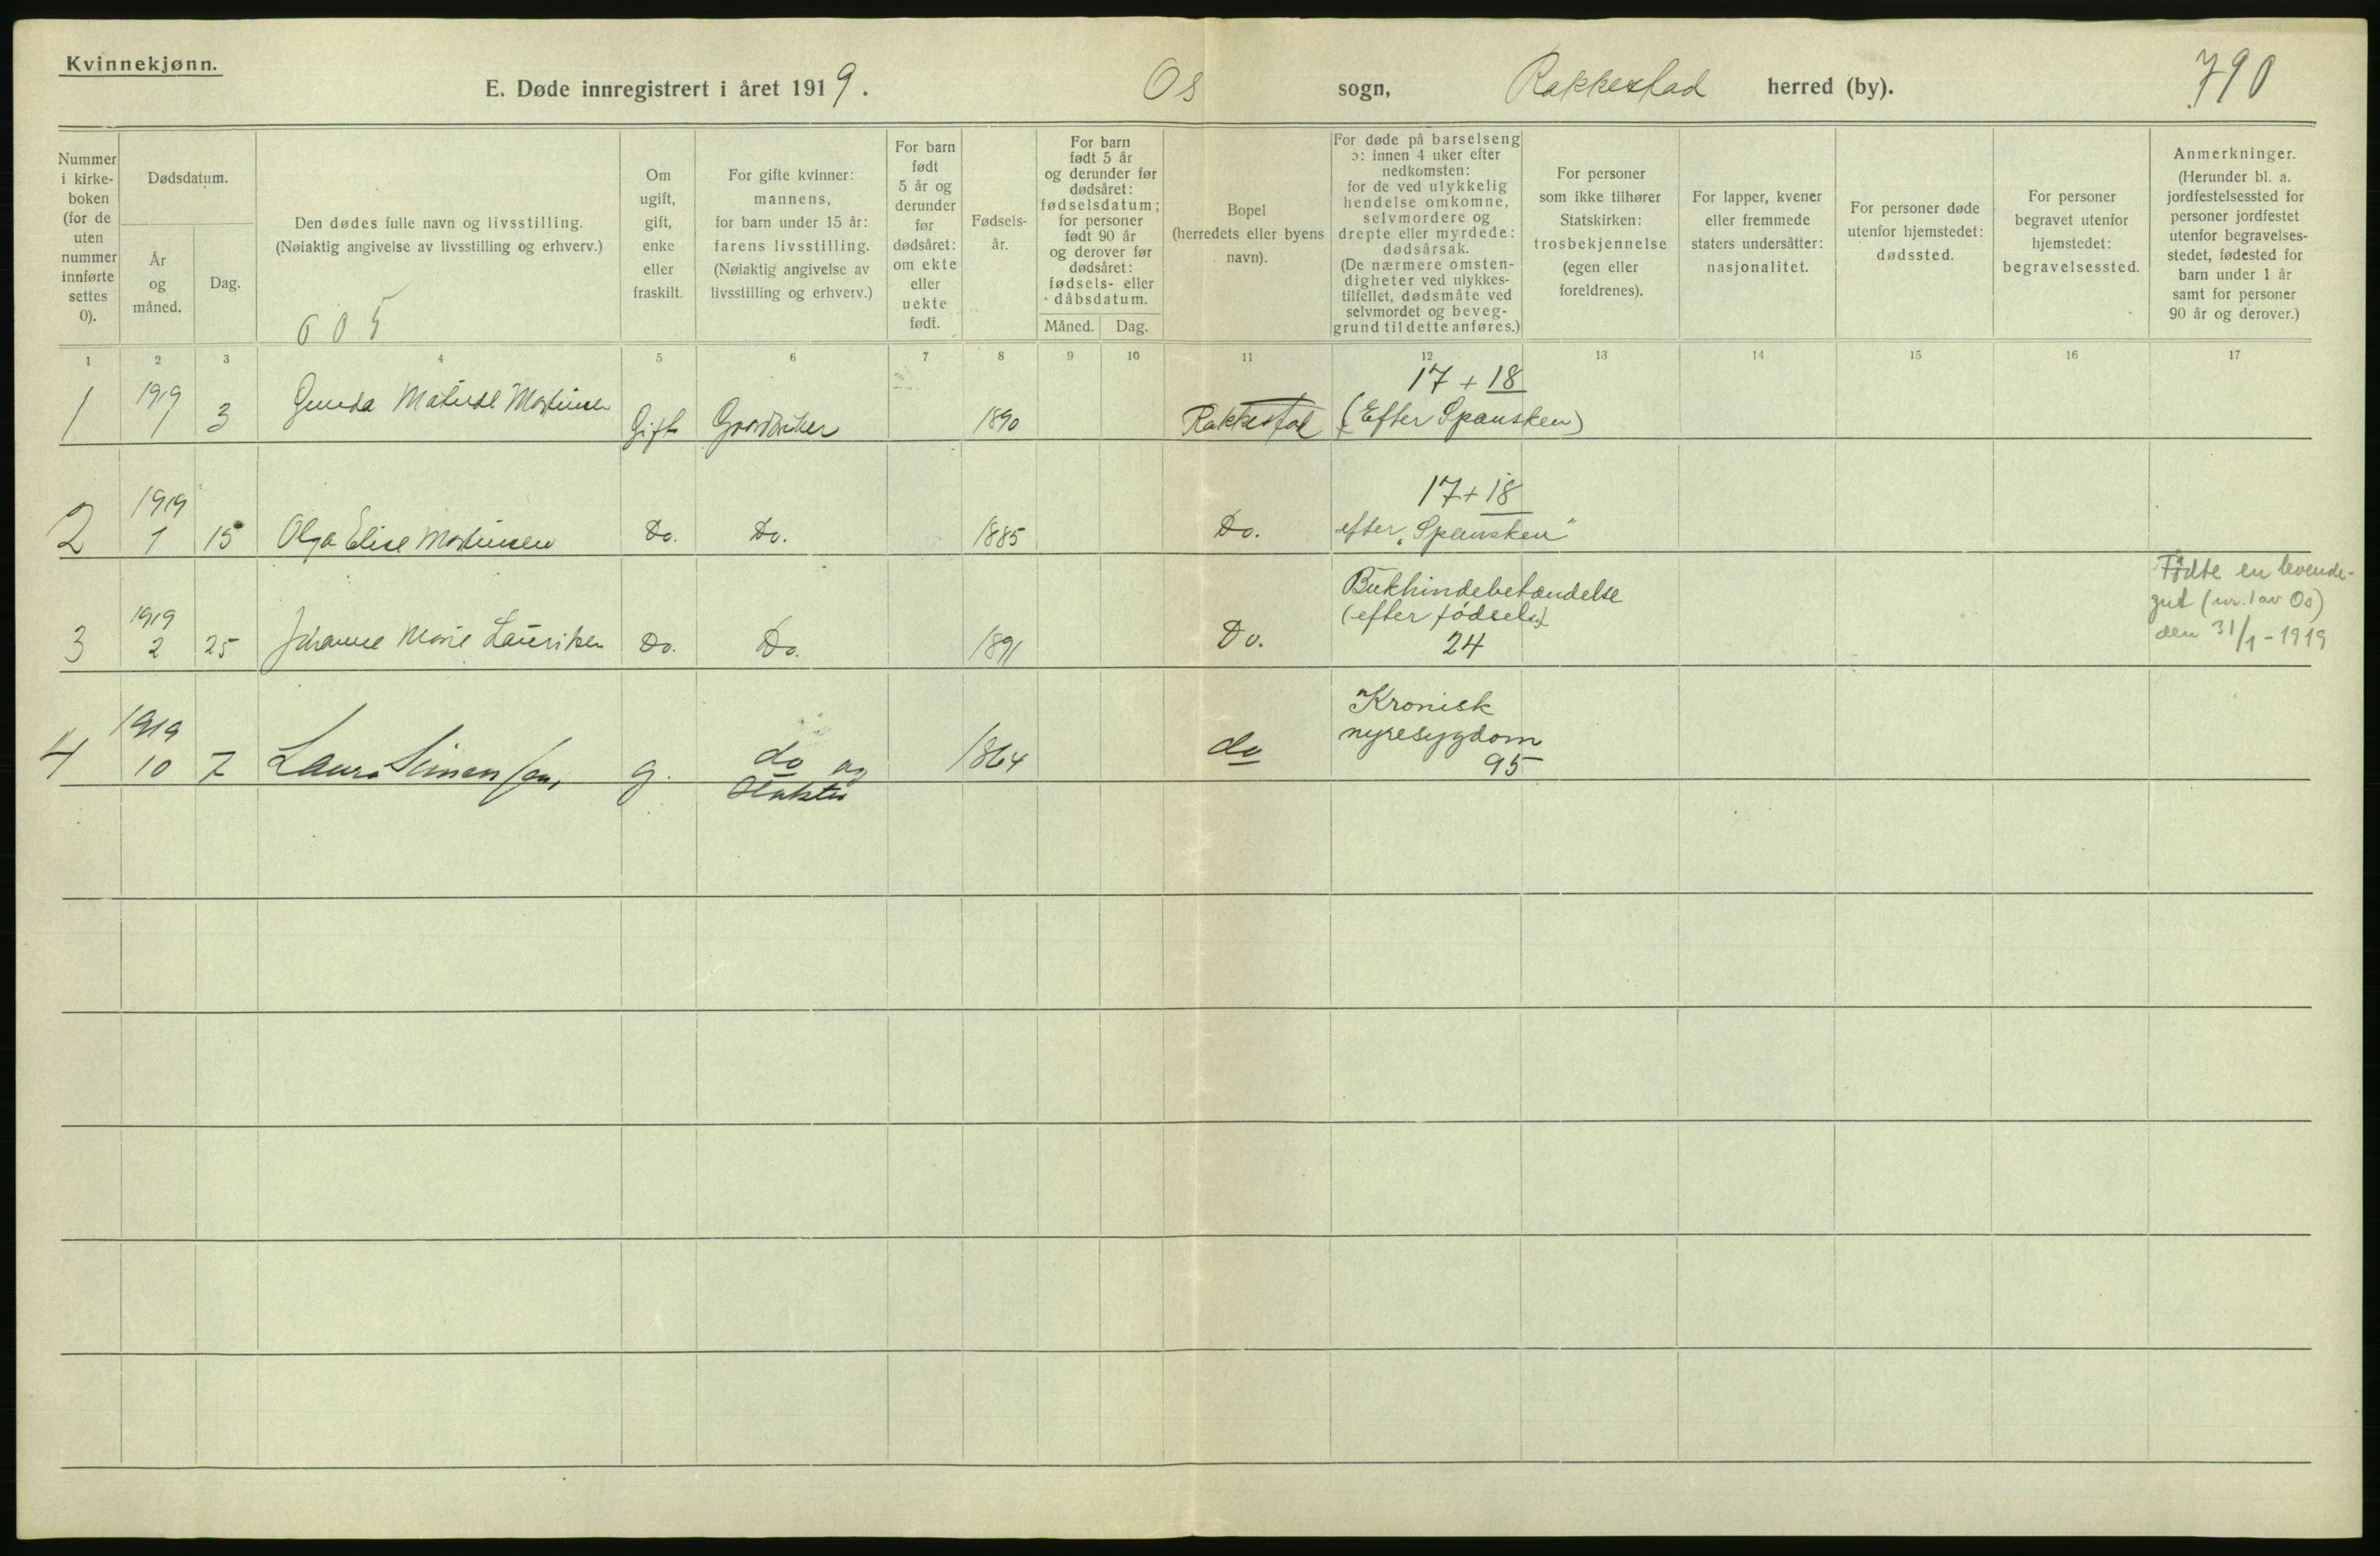 Kvinnekjønn.
E. Døde innregistrert i året 1919. Os sogn, Rakkestad herred (by). 790
Nummer
i kirke-
boken
(for de
uten
nummer
innførte
settes
0).
Dødsdatum.
År
og
måned.
Dag.
Den dødes fulle navn og livsstilling.
(Nøiaktig angivelse av livsstilling og erhverv.)
605
Om
ugift,
gift,
enke
eller
fraskilt.
For gifte kvinner:
mannens,
for barn under 15 år:
farens livsstilling.
(Nøiaktig angivelse av
livsstilling og erhverv.)
For barn
født
5 år og
derunder
før
dødsåret:
om ekte
eller
uekte
født.
Fødsels-
år.
For barn
født 5 år
og derunder før
dødsåret:
fødselsdatum;
for personer
født 90 år
og derover før
dødsåret:
fødsels- eller
dåbsdatum.
Måned. Dag.
Bopel
(herredets eller byens
navn).
For døde på barselseng
ɔ: innen 4 uker efter
nedkomsten:
for de ved ulykkelig
hendelse omkomne,
selvmordere og
drepte eller myrdede:
dødsårsak.
(De nærmere omsten-
digheter ved ulykkes-
tilfellet, dødsmåte ved
selvmordet og beveg-
grund til dette anføres.)
For personer
som ikke tilhører
Statskirken:
trosbekjennelse
(egen eller
foreldrenes).
For lapper, kvener
eller fremmede
staters undersåtter:
nasjonalitet.
For personer døde
utenfor hjemstedet:
dødssted.
For personer
begravet utenfor
hjemstedet:
begravelsessted.
Anmerkninger.
(Herunder bl. a.
jordfestelsessted for
personer jordfestet
utenfor begravelses-
stedet, fødested for
barn under 1 år
samt for personer
90 år og derover.)
1 2 3 4 5 6 7 8 9 10 11 12 13 14 15 16 17
1 1919 1 3 Gunda Matilde Martinsen Gift Gaardbruker 1890 Rakkestad 17 + 18
(Efter Spansken)
2 1919 1 15 Olga Elise Martinsen Do. Do. 1885 Do. 17 + 18
efter „Spansken"
3 1919 2 25 Johanne Marie Lauritsen Do. Do. 1891 Do. Bukhindebetændelse
(efter fødselen)
24
Fødte en levende-
gut (nr. 1 av Os)
den 31/1 - 1919
4 1919 10 7 Laura Simensen, g. do og
1864 do Kronisk
nyresygdom
95